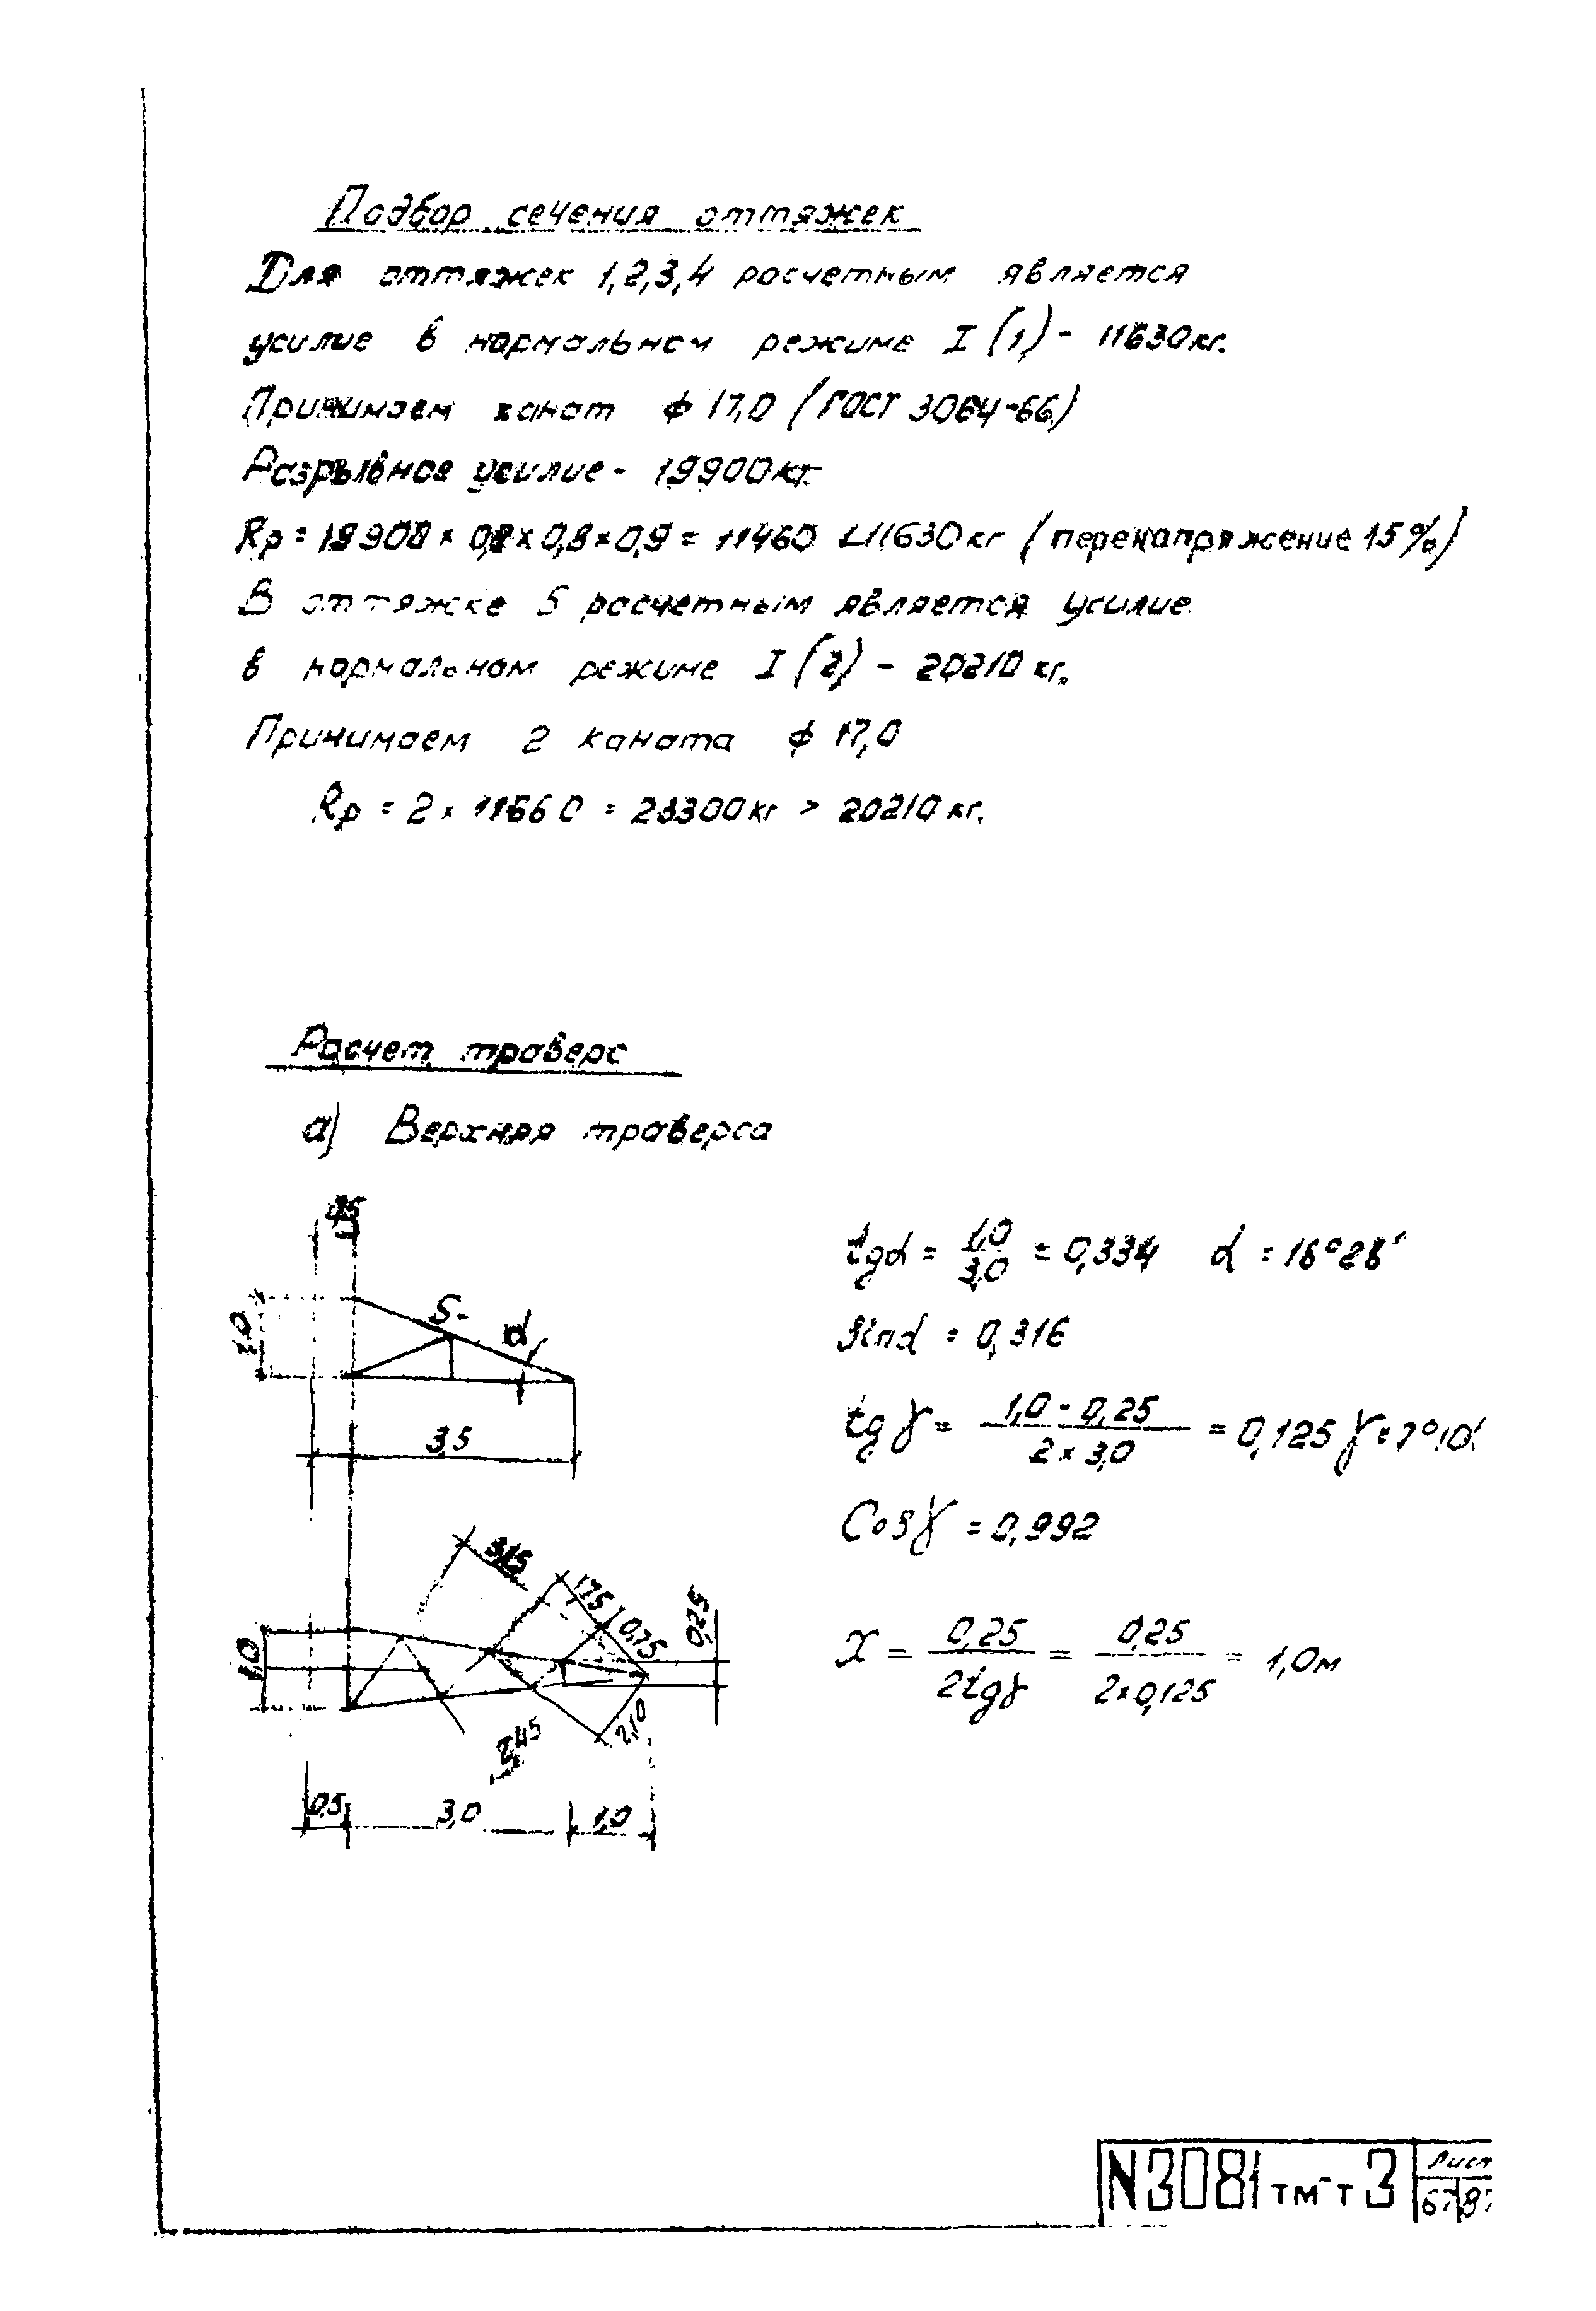 Подбор сечения оттяжек
Для оттяжек 1,2,3,4 расчетным является
усилие в нормальном режиме I (1) - 11630кг.
Принимаем канат ф 17,0 (ГОСТ 3064-66)
Разрывное усилие - 19900кг
Rр = 19900 × 0,8 × 0,8 × 0,9 = 11460 ∠ 11630кг (перенапряжение 1.5%)
В оттяжке 5 расчетным является усилие
в нормальном режиме I (2) - 20210 кг.
Принимаем 2 каната ф 17,0
Rр = 2 × 11660 = 23300кг > 20210 кг.
Расчет траверс
а) Верхняя траверса
0,5
1,0
S
α
3,5
tgα = 1,0 / 3,0 = 0,334 α = 18°28'
Sinα = 0,316
tgγ = 1,0 - 0,25 / 2 × 3,0 = 0,125 γ = 7°10'
Cosγ = 0,992
X = 0,25 / 2tgγ = 0,25 / 2×0,125 = 1,0м
3,15
1,75
0,75
0,25
1,0
3,45
2,10
0,5
3,0
1,0
N3081тм-т3
Лист
67